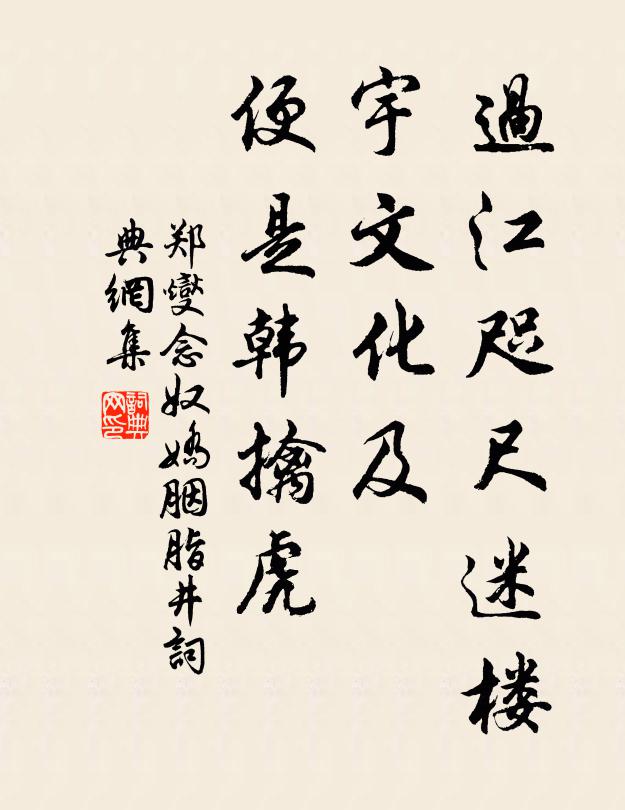 過江咫尺迷楼
宇文化及
便是韩擒虎
郑燮念奴嬌胭脂井詞
典網集
詞典
网印